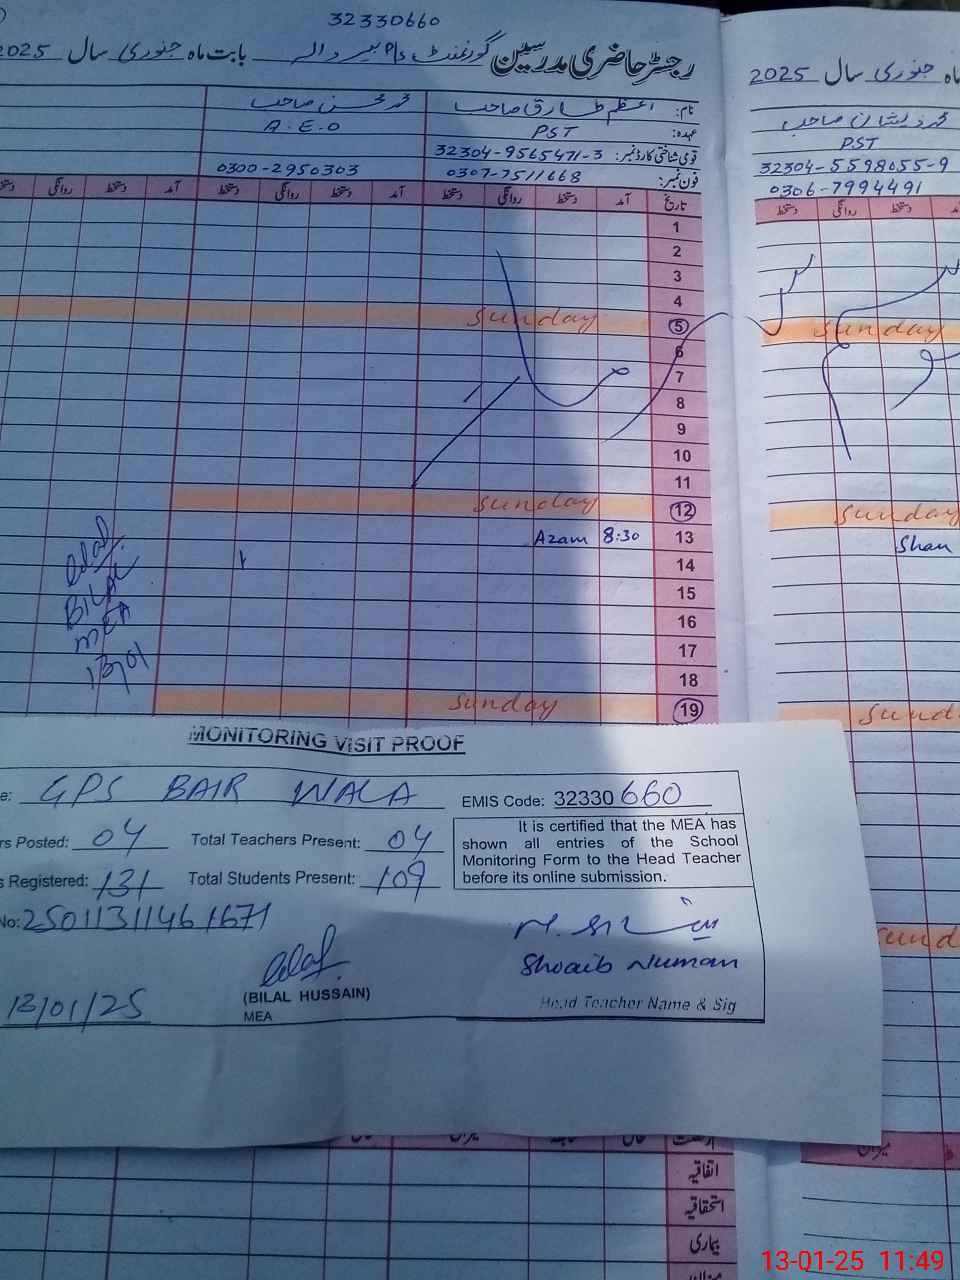 32330660
رجسٹر حاضری مدرسین گورنمنٹ p/s بیر والہ بابت ماہ جنوری سال 2025
نام: اعظم طارق صاحب
محمد محسن صاحب
عہدہ: PST
A.E.O
قومی شناختی کارڈ نمبر: 32304-9565471-3
فون نمبر: 0307-7511668
0300-2950303
تاریخ آمد دستخط روانگی دستخط آمد دستخط روانگی دستخط آمد دستخط روانگی دستخط
1
2
3
4
5 Sunday
6
7
8
9
10
11
12 Sunday
13 8:30 Azam
14
15
16
17
18
19 Sunday
BILAL
MEA
13/01
ماہ جنوری سال 2025
محمد ذیشان صاحب
PST
32304-5598055-9
0306-7994491
آمد دستخط روانگی دستخط
Sunday
Sunday
Shan
Sund
Sund
MONITORING VISIT PROOF
e: GPS BAIR WALA
EMIS Code: 32330660
rs Posted: 04 Total Teachers Present: 04
s Registered: 131 Total Students Present: 109
No: 25011311461671
It is certified that the MEA has
shown all entries of the School
Monitoring Form to the Head Teacher
before its online submission.
Shoaib Numan
Head Teacher Name & Sig
13/01/25
(BILAL HUSSAIN)
MEA
میزان
اتفاقیہ
استحقاقیہ
بیماری
13-01-25 11:49